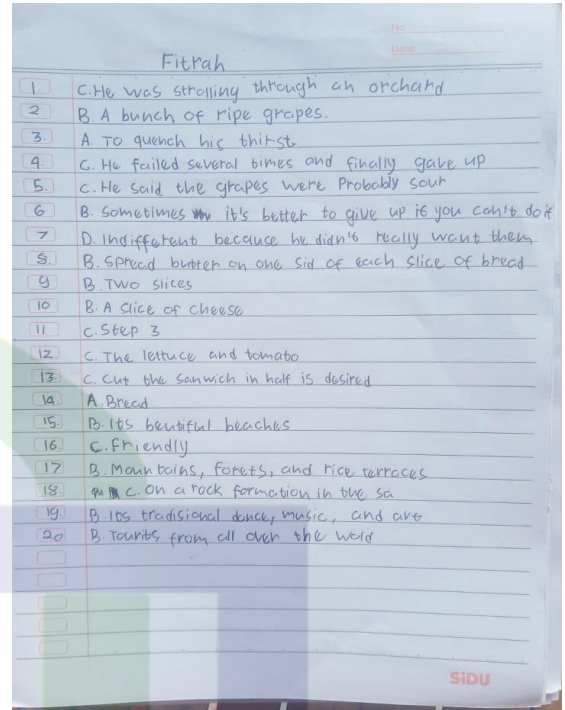 No.
Date:
Fitrah
1 C. He was strolling through an orchard
2 B. A bunch of ripe grapes.
3. A. To quench his thirst
4. C. He failed several times and finally gave up
5. C. He said the grapes were Probably sour
6 B. Sometimes it's better to give up if you can't do it
7 D. Indifferent because he didn't really want them
8. B. Spread butter on one sid of each slice of bread
9 B. Two slices
10 B. A slice of cheese
11 C. Step 3
12. C. The lettuce and tomato
13. C. Cut the sanwich in half is desired
14 A. Bread
15. B. Its beutiful beaches
16. C. Friendly
17 B. Mountains, forets, and rice terroces
18. C. On a rock formation in the sa
19. B. Its tradisional dance, music, and art
20 B. Tourits from all over the wold
SiDU